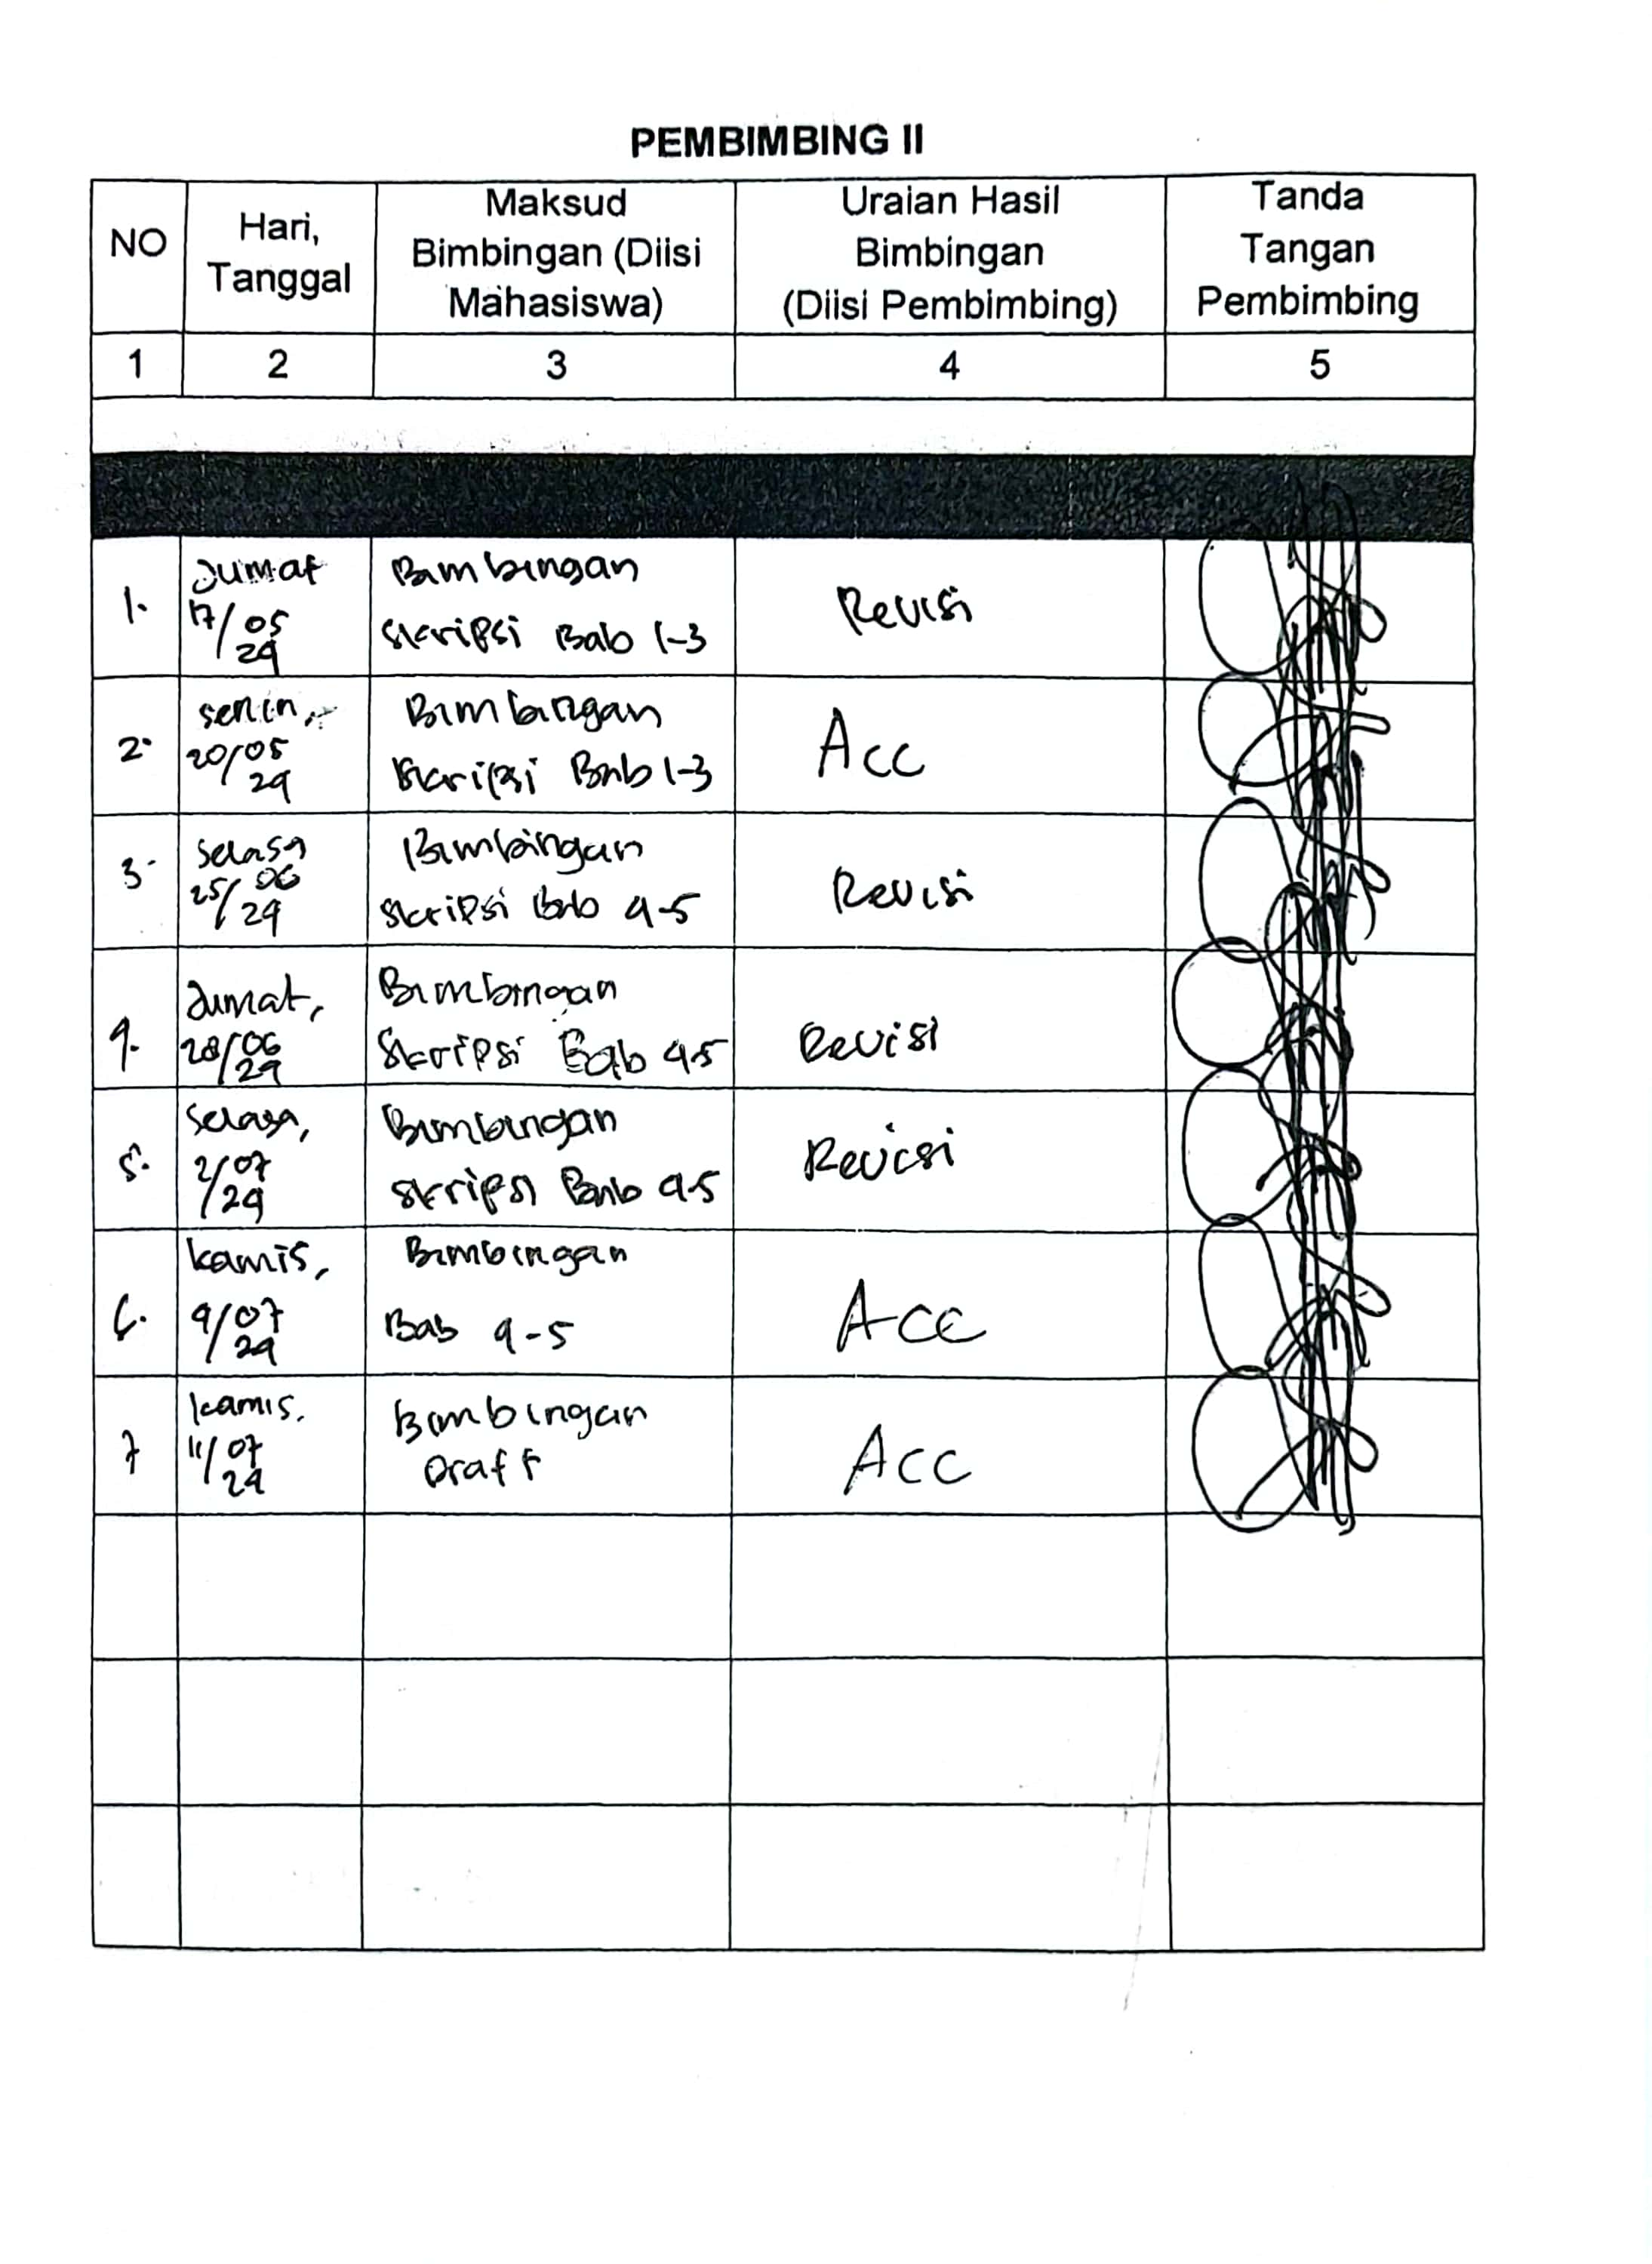 PEMBIMBING II
NO
Hari,
Tanggal
Maksud
Bimbingan (Diisi
Mahasiswa)
Uraian Hasil
Bimbingan
(Diisi Pembimbing)
Tanda
Tangan
Pembimbing
1 2 3 4 5
1.
Jumat
17/05
24
Bimbingan
Skripsi Bab 1-3
Revisi
2.
senin,
20/05
24
Bimbingan
Skripsi Bab 1-3
Acc
3.
Selasa
25/06
24
Bimbingan
Skripsi Bab 4-5
Revisi
4.
Jumat,
28/06
24
Bimbingan
Skripsi Bab 4-5
Revisi
5.
Selasa,
2/07
24
Bimbingan
skripsi Bab 4-5
Revisi
6.
kamis,
4/07
24
Bimbingan
Bab 4-5
Acc
7
kamis,
11/07
24
Bimbingan
Draft
Acc